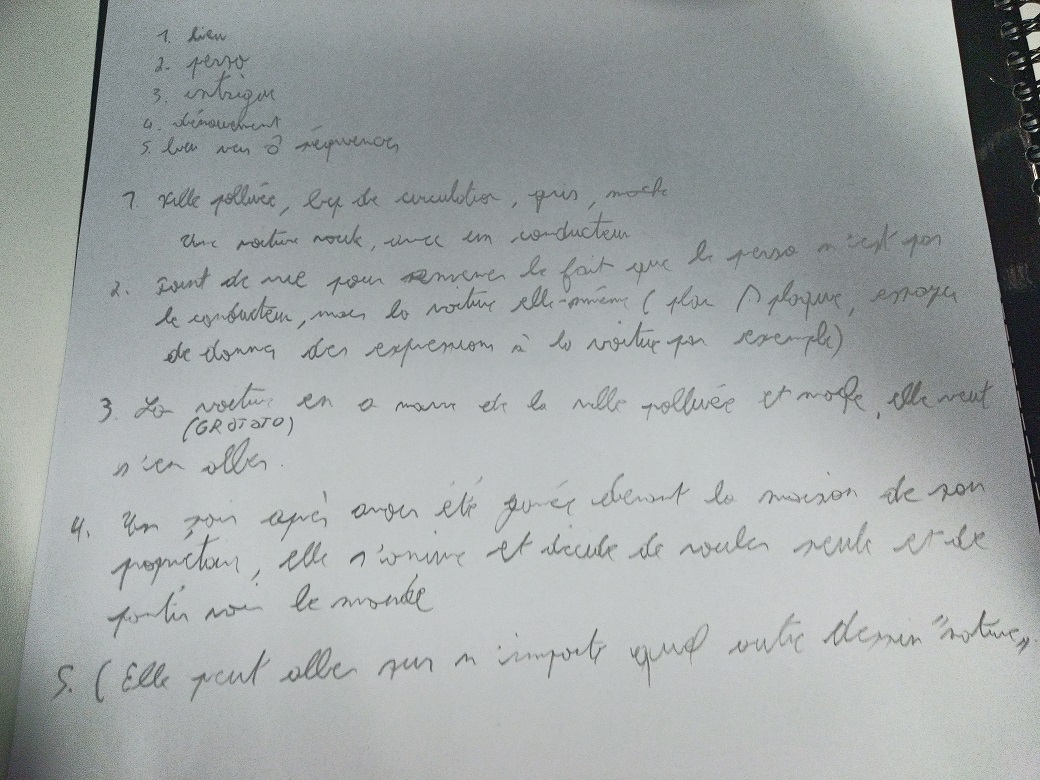 1. lieu
2. perso
3. intrigue
4. dénouement
5. lieu vers séquences
1. Ville polluée, bcp de circulation, gris, moche
Une voiture roule, avec un conducteur
2. Point de vue pour amener le fait que le perso n'est pas
le conducteur, mais la voiture elle-même (plan plaque, essayer
de donner des expressions à la voiture par exemple)
3. La voiture en a marre de la ville polluée et moche, elle veut
(GROTOTO)
s'en aller.
4. Un soir après avoir été garée devant la maison de son
propriétaire, elle s'anime et décide de rouler seule et de
partir voir le monde
5. (Elle peut aller sur n'importe quel autre dessin "nature"